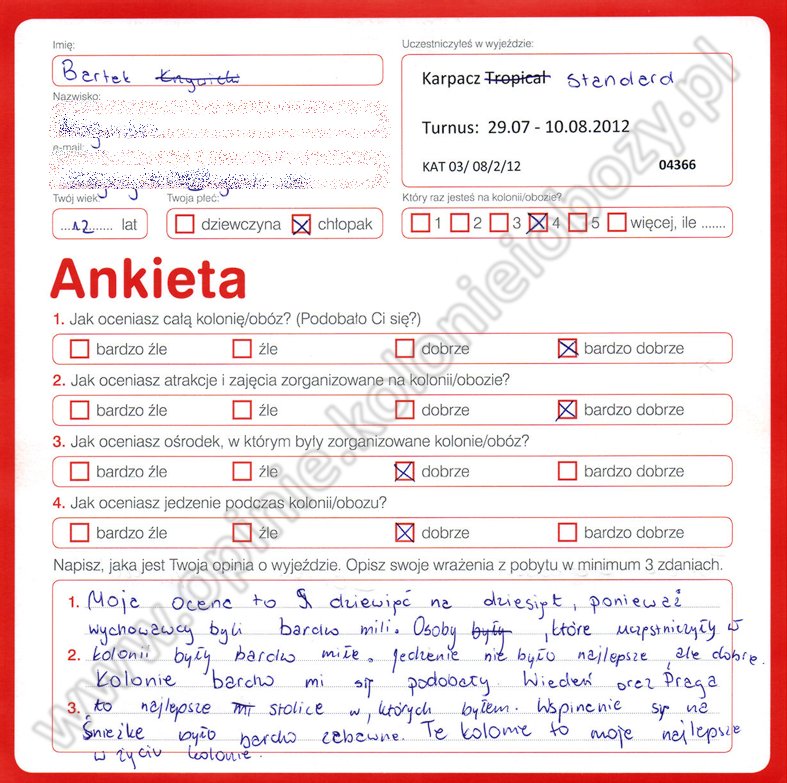 Imię:
Uczestniczyłeś w wyjeździe:
Bartek
Karpacz Tropical Standard
Nazwisko:
Turnus: 29.07 - 10.08.2012
e-mail:
KAT 03/ 08/2/12 04366
Twój wiek: Twoja płeć: Który raz jesteś na kolonii/obozie?
...12....... lat dziewczyna chłopak 1 2 3 4 5 więcej, ile .......
Ankieta
1. Jak oceniasz całą kolonię/obóz? (Podobało Ci się?)
bardzo źle źle dobrze bardzo dobrze
2. Jak oceniasz atrakcje i zajęcia zorganizowane na kolonii/obozie?
bardzo źle źle dobrze bardzo dobrze
3. Jak oceniasz ośrodek, w którym były zorganizowane kolonie/obóz?
bardzo źle źle dobrze bardzo dobrze
4. Jak oceniasz jedzenie podczas kolonii/obozu?
bardzo źle źle dobrze bardzo dobrze
Napisz, jaka jest Twoja opinia o wyjeździe. Opisz swoje wrażenia z pobytu w minimum 3 zdaniach.
1. Moja ocena to dziewięć na dziesięć, ponieważ
wychowawcy byli bardzo mili. Osoby były, które uczęstniczyły w
2. kolonii były bardzo miłe. jedzenie nie było najlepsze, ale dobre.
Kolonie bardzo mi się podobały. Wiedeń oraz Praga
3. to najlepsze stolice w, których byłem. Wspinanie się na
Śnieżke było bardzo zabawne. Te kolonie to moje najlepsze
w życiu kolonie.
www.opinie.kolonieiobozy.pl